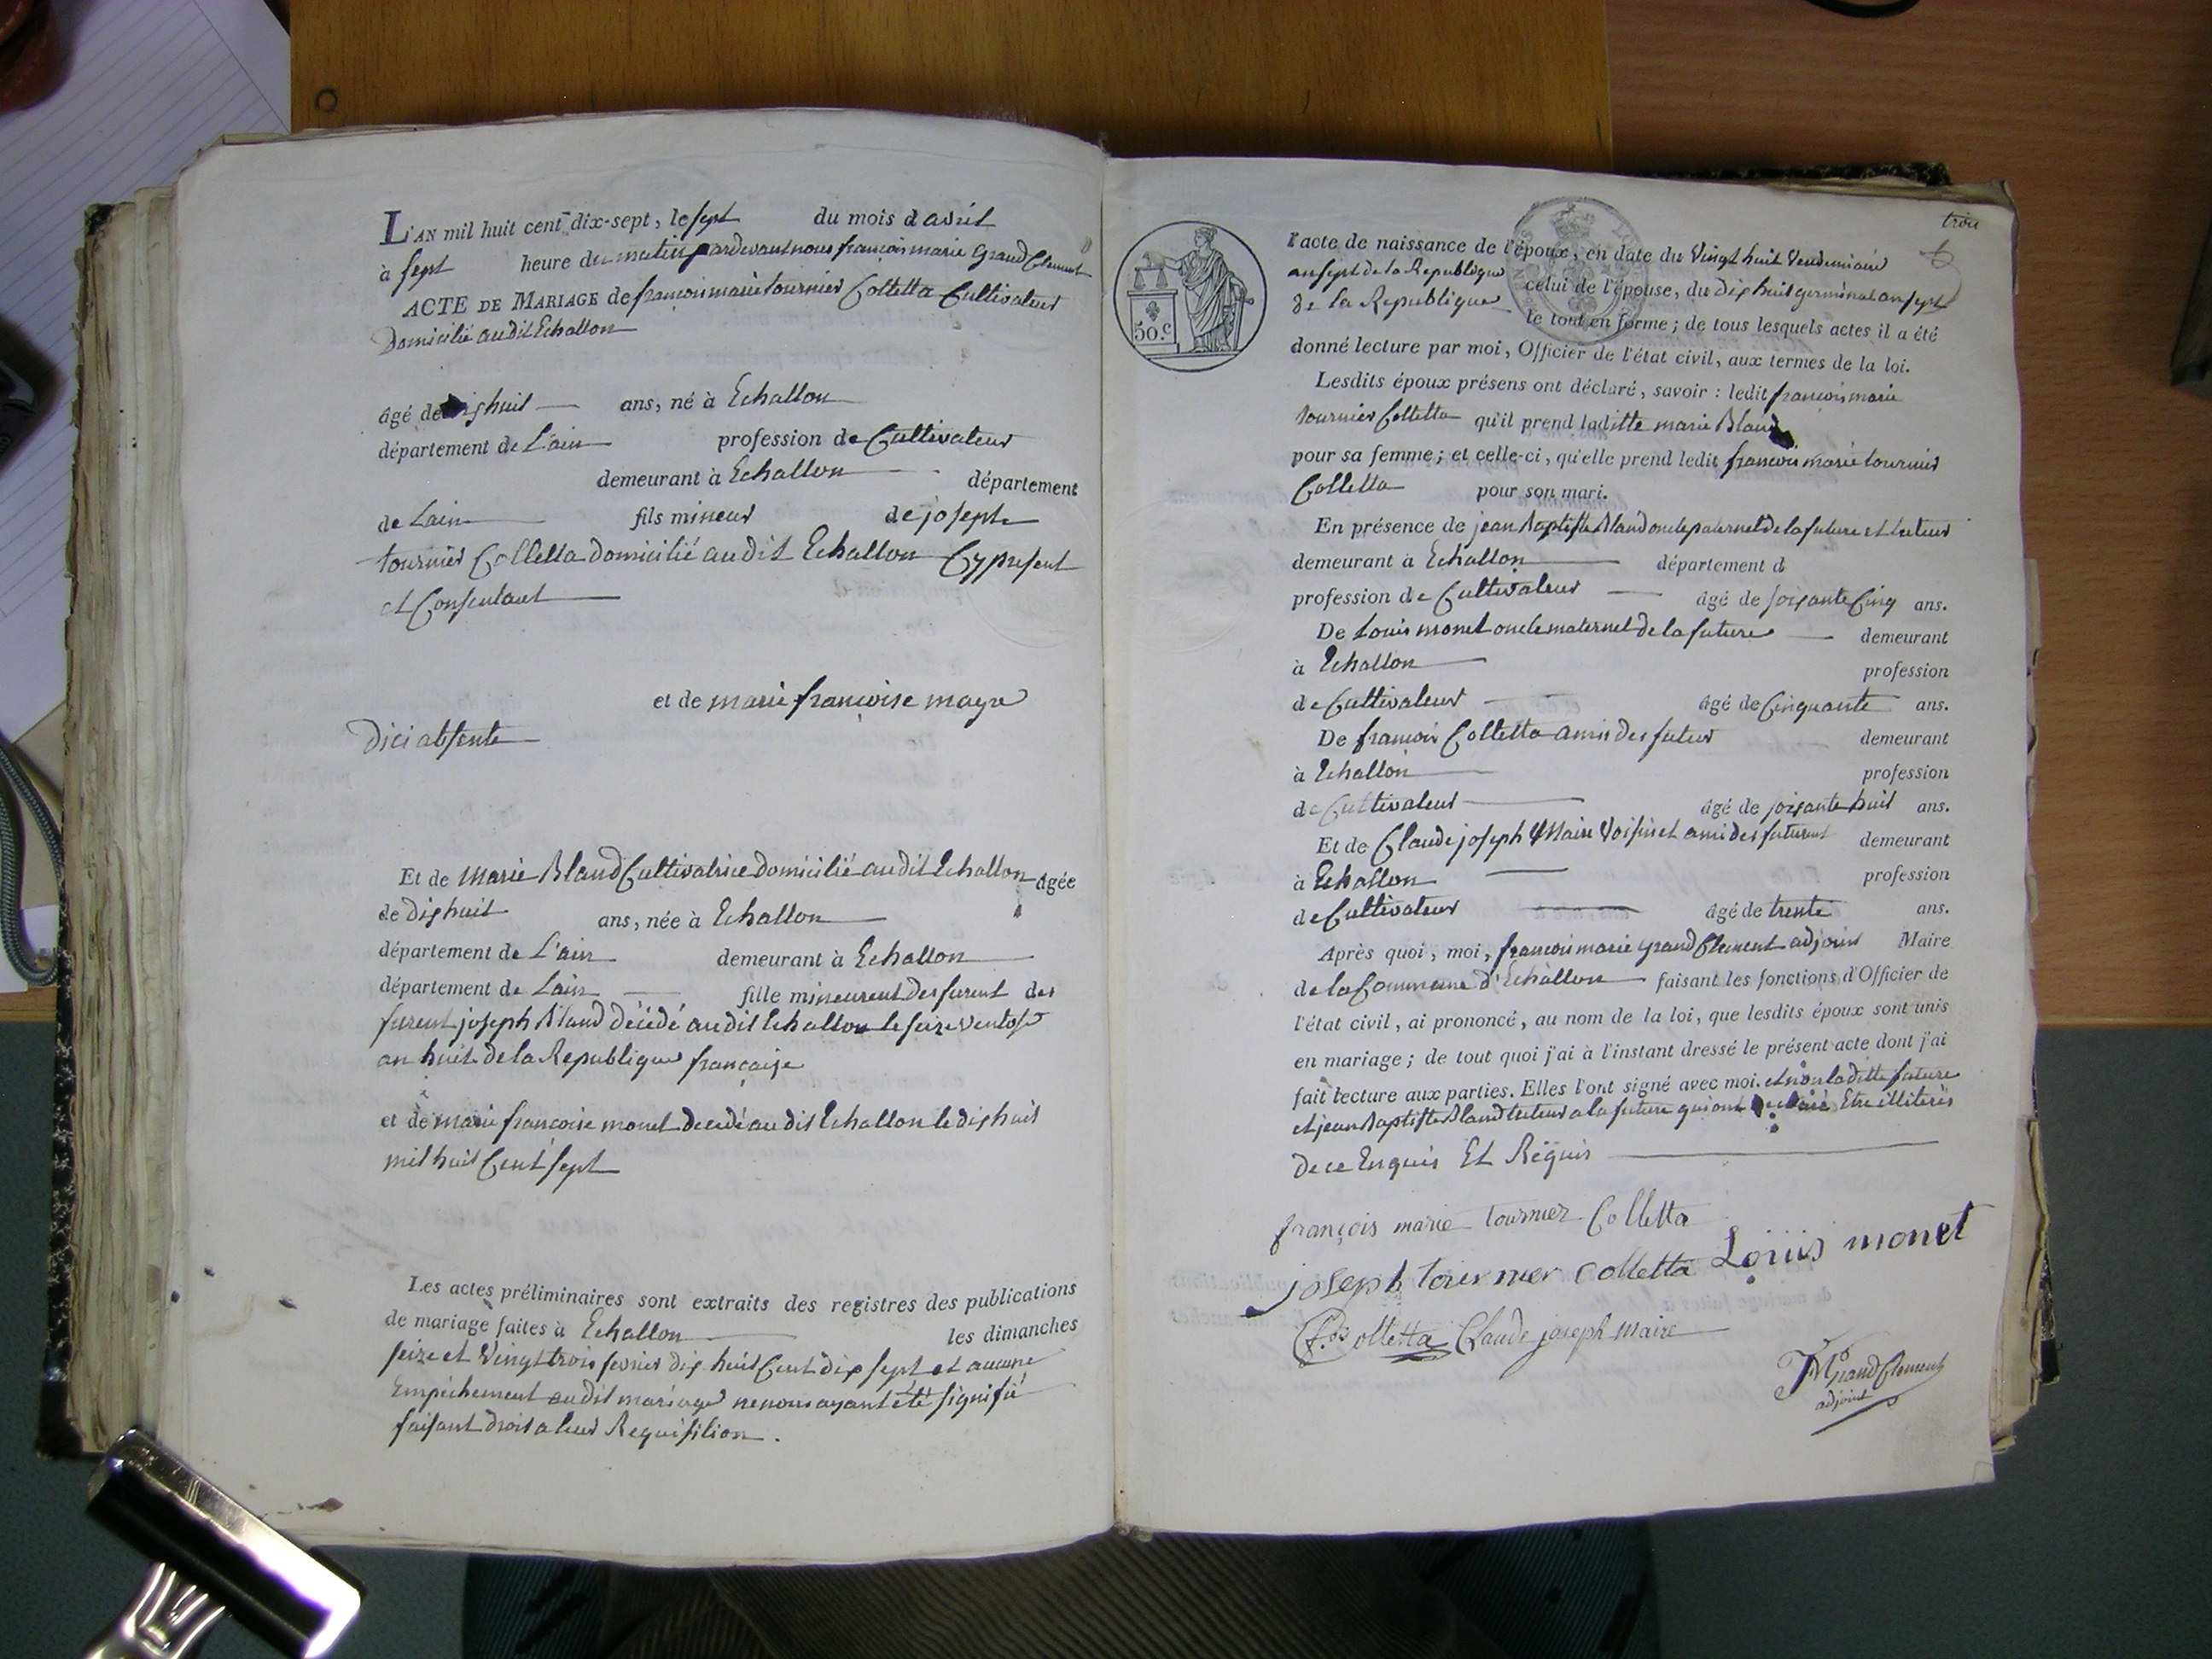 L'AN mil huit cent dix-sept, le sept du mois d'avril
à sept heure du matin pardevant nous françois marie Grand Clement
ACTE DE MARIAGE de françois marie tournier Colletta Cultivateur
Domicilié audit Echallon
âgé de dixhuit ans, né à Echallon
département de L'ain profession de Cultivateur
demeurant à Echallon département
de Lain fils mineur de joseph
tournier Colletta domicilié audit Echallon Cy present
et Consentant
et de marie françoise mayre
dici absente
Et de Marie Bland Cultivatrice domicilié audit Echallon agée
de dixhuit ans, née à Echallon
département de L'ain demeurant à Echallon
département de Lain fille mineure des furent des
furent joseph Bland décédé audit Echallon le seize ventose
an huit de la Republique française
et de marie francoise monet decedé audit Echallon le dixhuit
mil huit Cent sept
Les actes préliminaires sont extraits des registres des publications
de mariage faites à Echallon les dimanches
seize et Vingt trois fevrier dix huit Cent dix sept et aucune
Empechement audit mariage ne nous ayant été signifié
faisant droit a leur Requisition.
trois
50.c
l'acte de naissance de l'époux, en date du Vingt huit Vendemiaire
an sept de la Republique celui de l'épouse, du dix huit germinal an sept
de la Republique le tout en forme; de tous lesquels actes il a été
donné lecture par moi, Officier de l'état civil, aux termes de la loi.
Lesdits époux présens ont déclaré, savoir: ledit françois marie
tournier Colletta qu'il prend laditte marie Bland
pour sa femme; et celle-ci, qu'elle prend ledit françois marie tournier
Colletta pour son mari.
En présence de jean Baptiste Bland oncle paternel de la future et tuteur
demeurant à Echallon département d
profession de Cultivateur âgé de soixante Cinq ans.
De Louis monet oncle maternel de la future demeurant
à Echallon profession
de Cultivateur âgé de Cinquante ans.
De françois Colletta amis des futur demeurant
à Echallon profession
de Cultivateur âgé de soixante huit ans.
Et de Claude joseph Maire Voisin et ami des futurs demeurant
à Echallon profession
de Cultivateur âgé de trente ans.
Après quoi, moi, francois marie grand Clement adjoint Maire
de la Commune d'Echallon faisant les fonctions d'Officier de
l'état civil, ai prononcé, au nom de la loi, que lesdits époux sont unis
en mariage; de tout quoi j'ai à l'instant dressé le présent acte dont j'ai
fait lecture aux parties. Elles l'ont signé avec moi. et non laditte future
et jean Baptiste Bland tuteur a la future qui ont declaré Etre illiterés
de ce Enquis Et Réquis
françois marie tournier Colletta
joseph tournier Colletta Loüis monet
f.ois Colletta Claude joseph maire
FM Grand Clement
adjoint